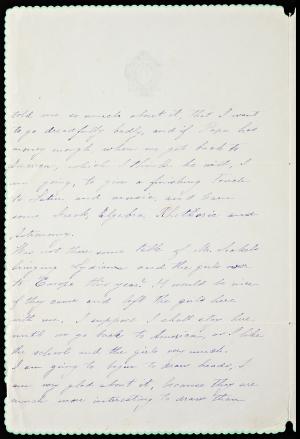 told me so much about it, that I want
to go dreadfully badly, and if Papa has
money enough when we get back to
America, which I think he will, I
am going, to give a finishing touch
to Latin and music, and learn
some Greek, Algebra, Rhetoric and
Astronomy.
Was not there some talk of Mr.
bringing Lydian and the girls over
to Europe this year? It would be nice
if they came and left the girls here
with me. I suppose I shall stay here
until we go back to America, as I like
the school and the girls very much.
I am going to begin to draw heads, I
am very glad about it, because they are
much more interesting to draw than